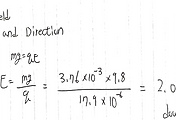 eld
and Direction
mg=qE
E = mg/q = 3.76×10⁻³ × 9.8 / 17.9 × 10⁻⁶ = 2.0
dow